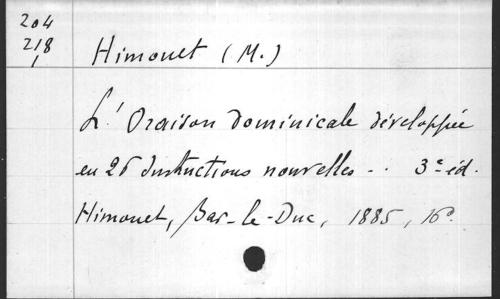 204
218
1
Himonet (M.)
L'Oraison dominicale développée
en 26 Instructions nouvelles .. 3e éd.
Himonet, Bar-le-Duc, 1885, 16°.